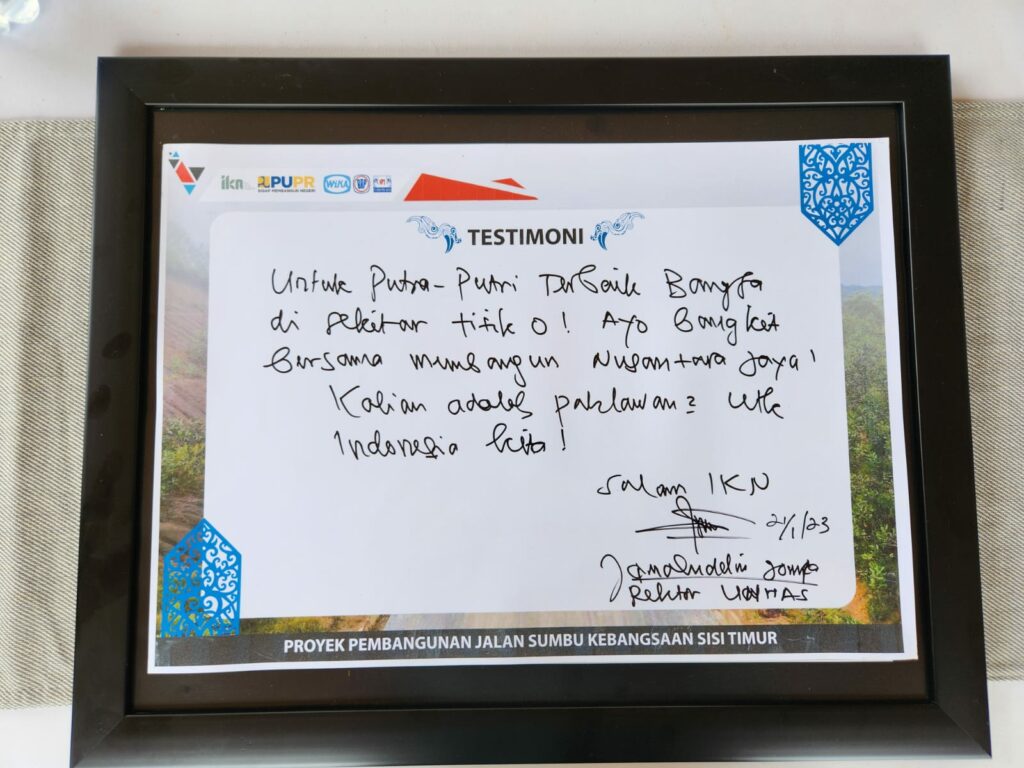 ikn
PUPR
SIGAP MEMBANGUN NEGERI
WIKA
TESTIMONI
Untuk Putra-Putri Terbaik Bangsa
di sekitar titik 0! Ayo Bangkit
Bersama membangun Nusantara Jaya!
Kalian adalah pahlawan2 utk
Indonesia kita!
Salam IKN
21/1/23
Jamaluddin Jompa
Rektor UNHAS
PROYEK PEMBANGUNAN JALAN SUMBU KEBANGSAAN SISI TIMUR